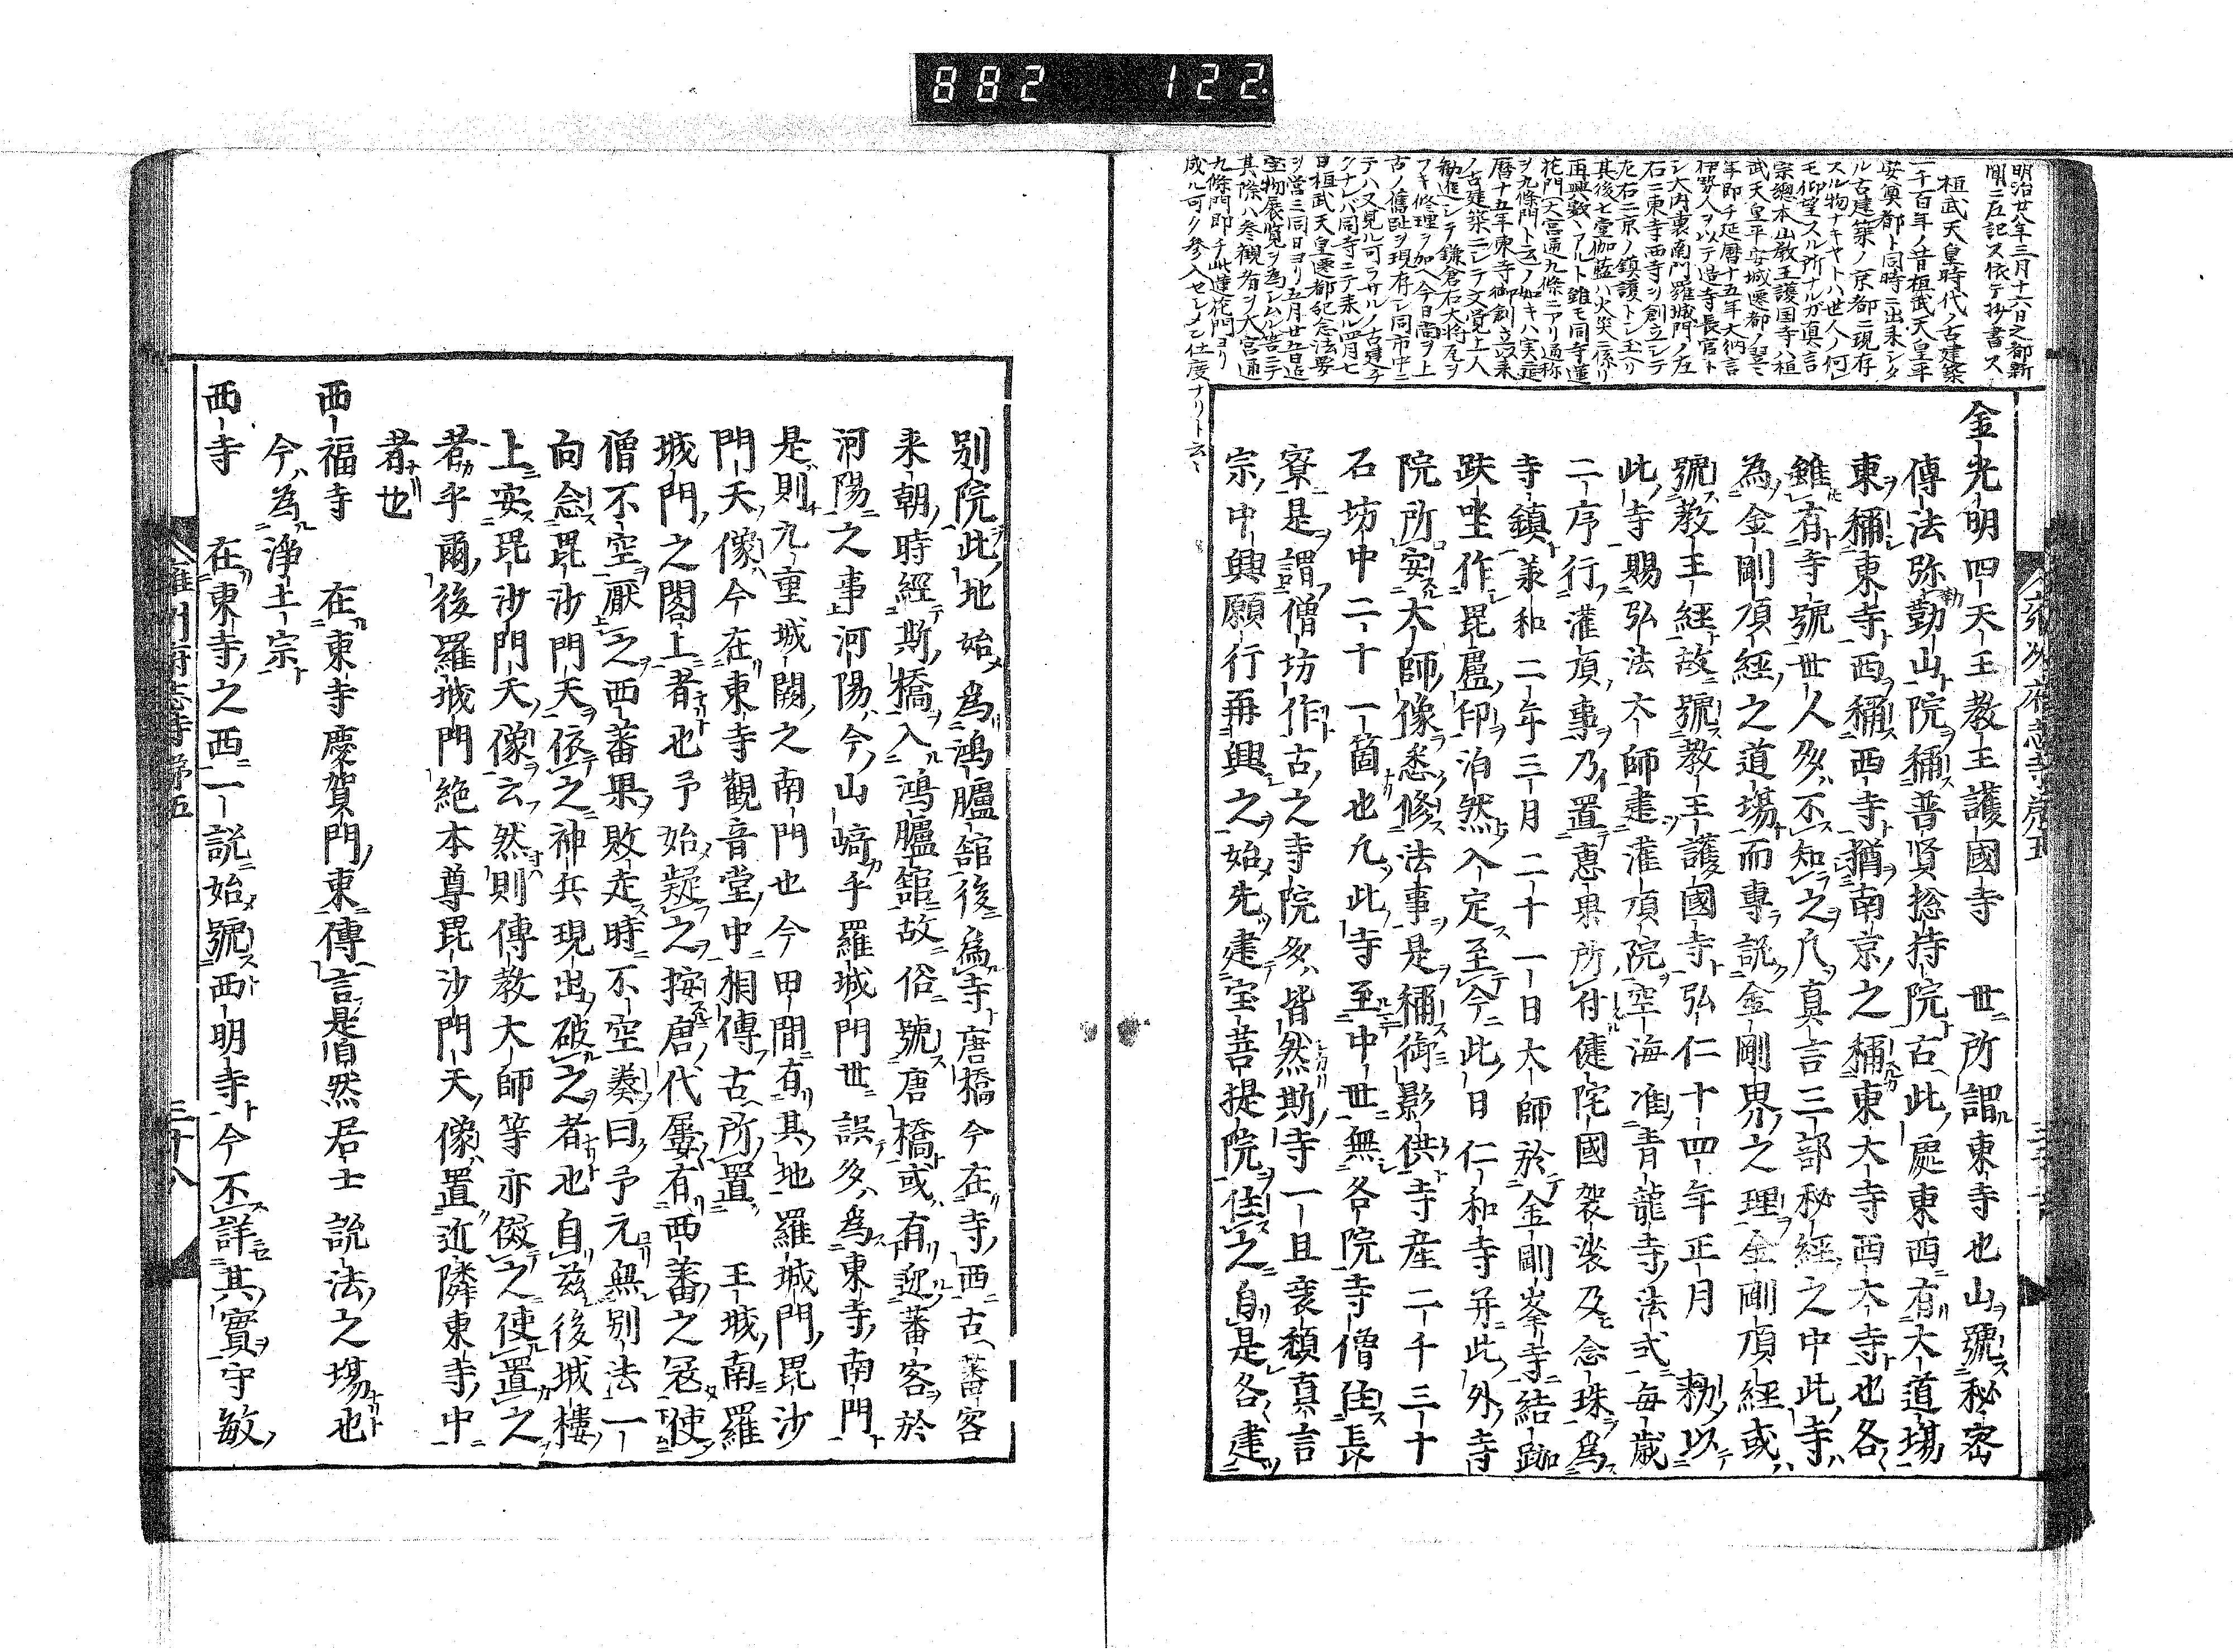 882 122.
明治廿八年三月十六日之都新
聞ニ左記ス依テ抄書ス
桓武天皇時代ノ古建築
一千百年ノ昔桓武天皇平
安奠都ト同時ニ出来シタ
ル古建築ノ京都ニ現存
スル物ナキヤトハ世人ノ何レ
モ仰望スル所ナルガ真言
宗總本山教王護国寺ハ桓
武天皇平安城遷都ノ翌々
年即チ延暦十五年大納言
伊勢人ヲ以テ造寺長官ト
シ大内裏南門羅城門ノ左
右ニ東寺西寺ヲ創立シテ
左右二京ノ鎮護トシ玉ヘリ
其後七堂伽藍ハ火災ニ係リ
再興數々アルト雖モ同寺蓮
花門大宮通九條ニアリ通称
ヲ九條門ト云フノ如キハ実ニ延
暦十五年東寺御創立以来
ノ古建築ニシテ文覚上人
勧進シテ鎌倉右大将屋ヲ
フキ修理ヲ加ヘ今日尚ヲ上
古ノ舊趾ヲ現存シ同市中ニ
テハ又見ル可ラサルノ古建チ
クナレバ同寺ニテ来ル四月七
日桓武天皇遷都紀念法要
ヲ営ミ同日ヨリ五月廿五日迄
宝物展覧ヲ為シムル筈ニテ
其際ハ参観者ヲ大宮通
九條門即チ此蓮花門ヨリ
成ル可ク参入セシメン仕度ナリト云々
金光明四天王教王護國寺 世所謂東寺也山號秘密
傳法弥勤山院稱普賢捴持院古此處東西有大道場
東稱東寺西稱西寺猶南京之稱東大寺西大寺也各
雖有寺號世人多不知之凡真言三部秘經之中此寺
為金剛頂經之道場而專説金剛界之理金剛頂經或
號教王經故號教王護國寺弘仁十四年正月 勅以
此寺賜弘法大師建灌頂院空海准青龍寺法式每歳
二序行灌頂事乃置惠果所付健陀國袈裟及念珠為
寺鎮兼和二年三月二十一日大師於金剛峯寺結跏
趺坐作毘盧印泊然入定至今此日仁和寺并此外寺
院所安大師像悉修法事是稱御影供寺産二千三十
石坊中二十一箇也凡此寺至中世無各院寺僧住長
寮是謂僧坊作古之寺院多皆然斯寺一旦衰頽真言
宗中興願行再興之始先建宝菩提院住之自是各建
別院此地始為鴻臚舘後為寺唐橋今在寺西古蕃客
来朝時經斯橋入鴻臚舘故俗號唐橋或有迎蕃客於
河陽之事河陽今山﨑乎羅城門世誤多為東寺南門
是則九重城闕之南門也今田間有其地羅城門毘沙
門天像今在東寺觀音堂中相傳古所置 王城南羅
城門之閣上者也予始疑之按唐代屢有西蕃之冦使
僧不空厭之西蕃果敗走時不空奏曰予元無別法一
向念毘沙門天依之神兵現出破之者也自茲後城樓
上安毘沙門天像云然則傳教大師等亦倣之使置之
者乎爾後羅城門絶本尊毘沙門天像置近隣東寺中
者也
西福寺 在東寺慶賀門東傳言是自然居士説法之場也
今為浄土宗
西寺 在東寺之西一説始號西明寺今不詳其實守敏
雍州府志寺第五
三十八